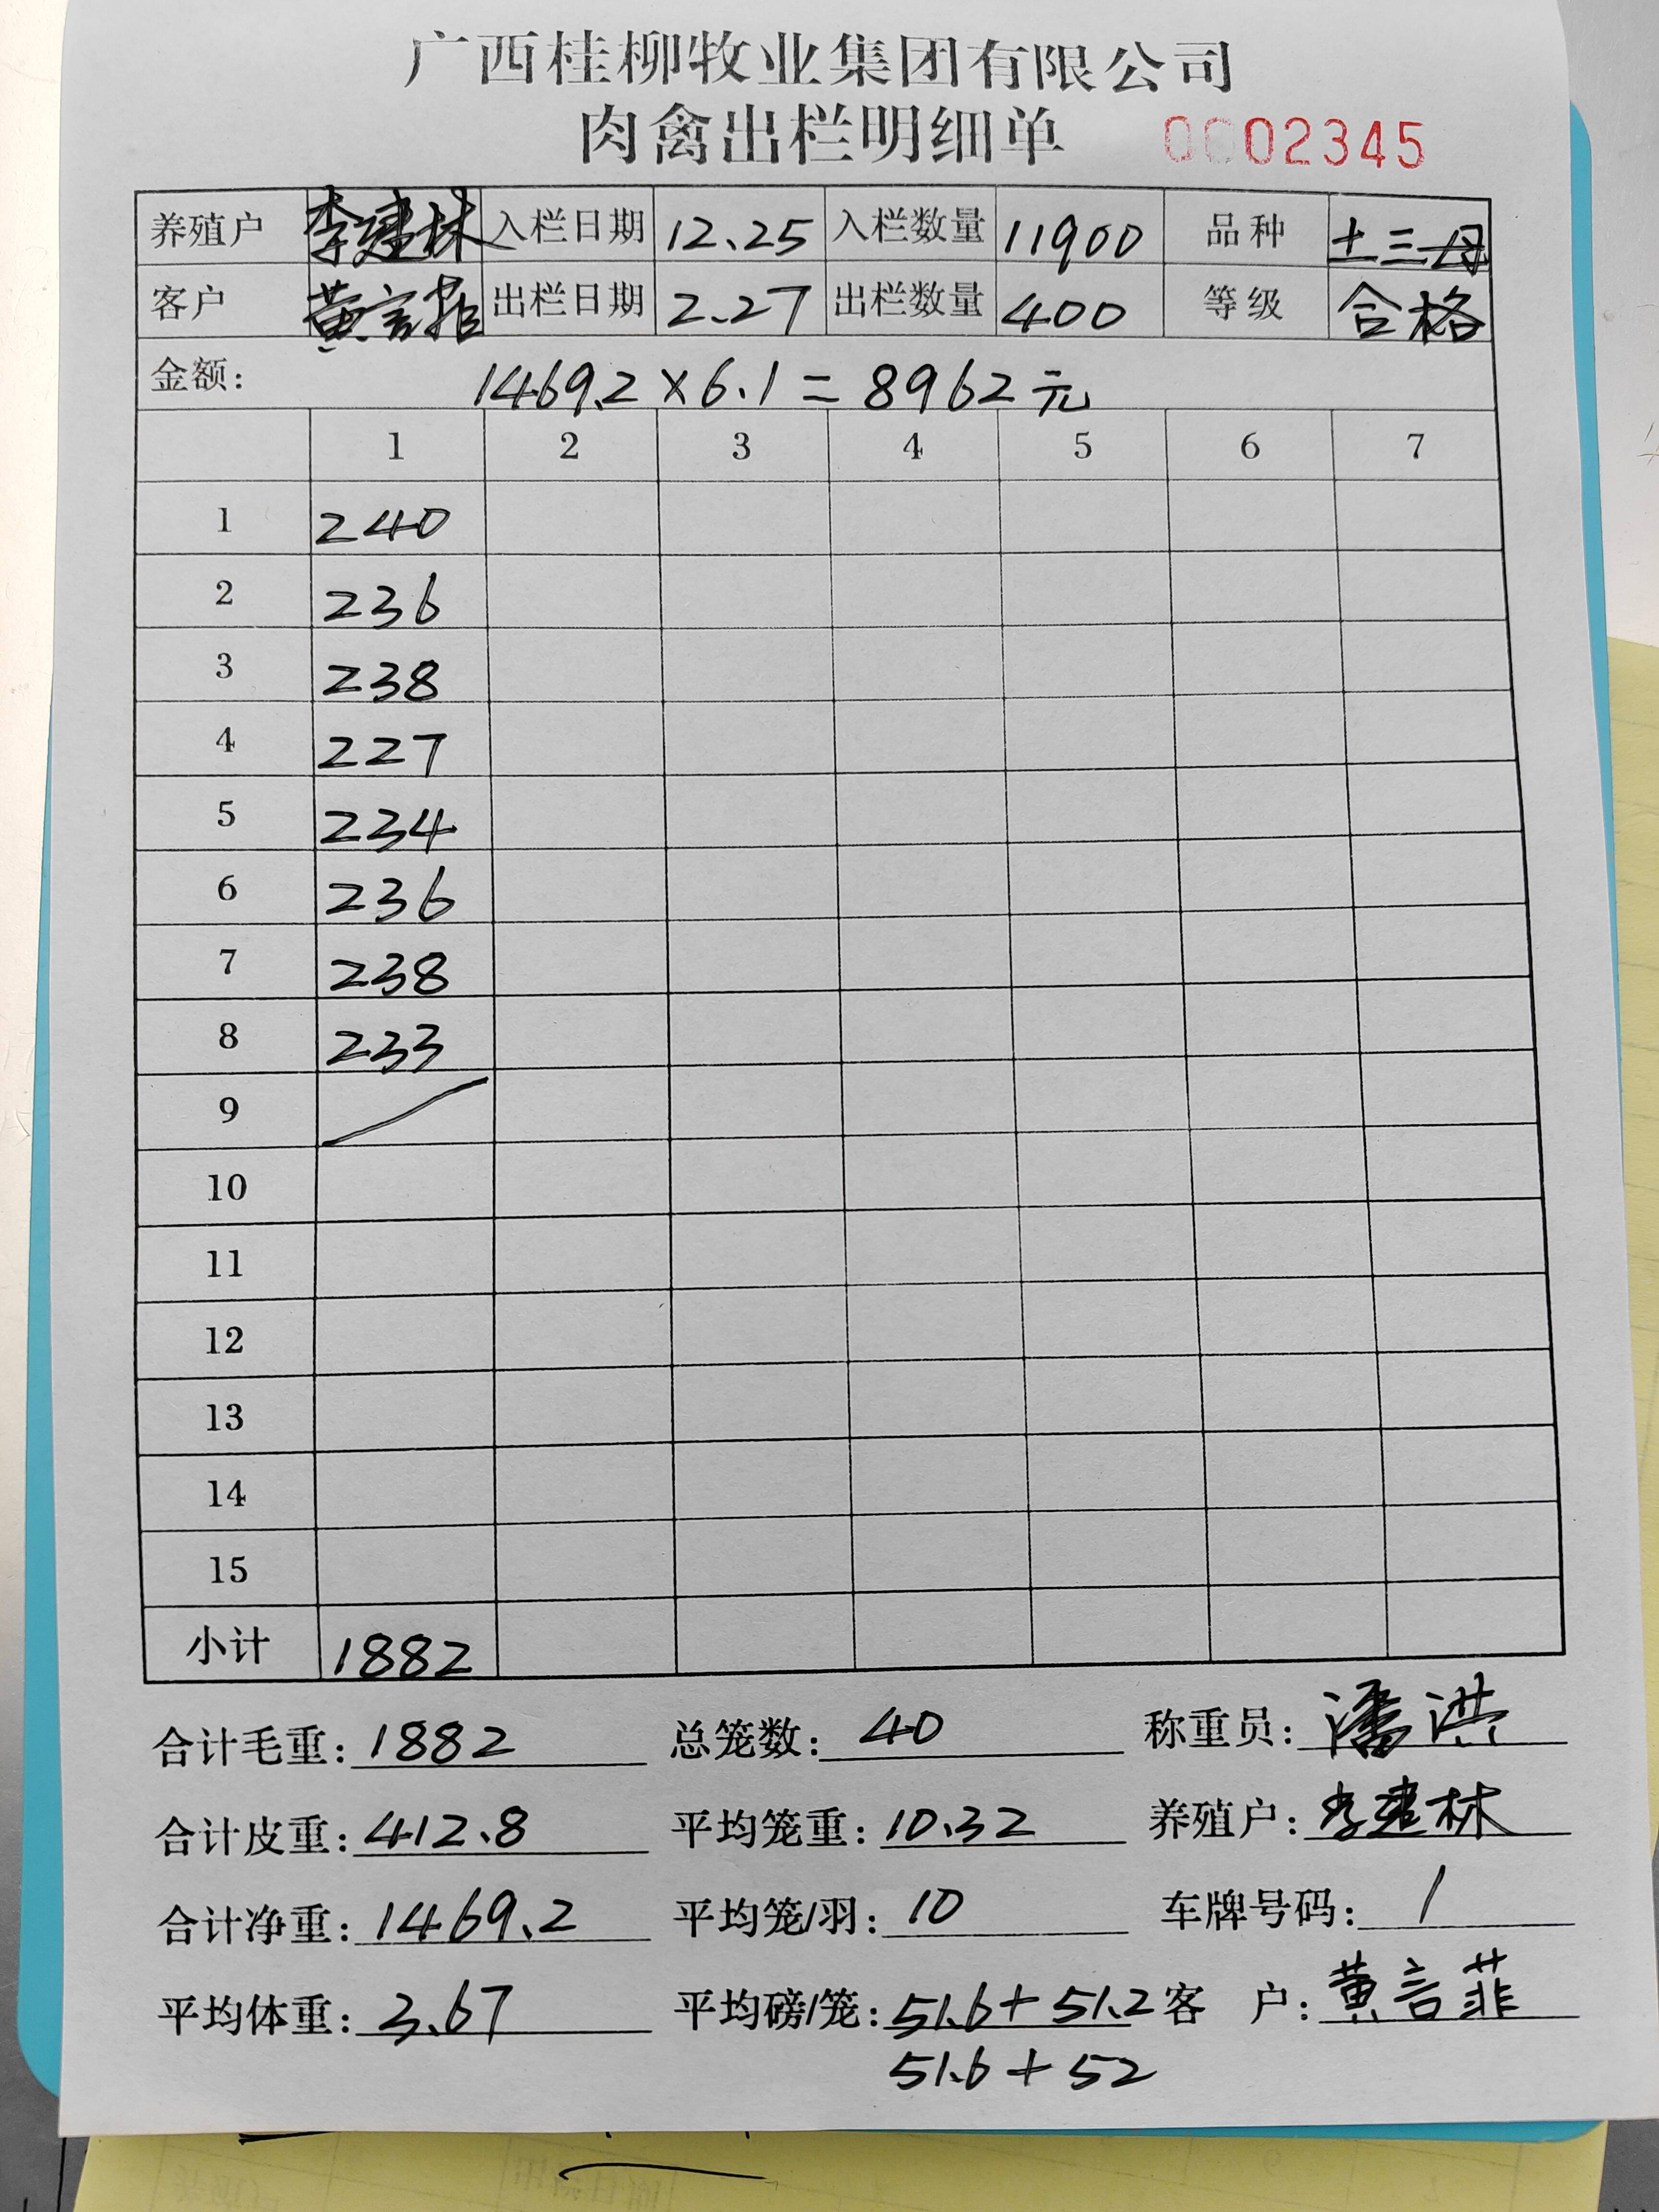 广西桂柳牧业集团有限公司
肉禽出栏明细单 0002345
养殖户 李建林 入栏日期 12.25 入栏数量 11900 品种 土三母
客户 黄言菲 出栏日期 2.27 出栏数量 400 等级 合格
金额: 1469.2×6.1=8962元
1 2 3 4 5 6 7
1 240
2 236
3 238
4 227
5 234
6 236
7 238
8 233
9
10
11
12
13
14
15
小计 1882
合计毛重: 1882 总笼数: 40 称重员: 潘洪
合计皮重: 412.8 平均笼重: 10.32 养殖户: 李建林
合计净重: 1469.2 平均笼/羽: 10 车牌号码: 1
平均体重: 3.67 平均磅/笼: 51.6+51.2 客 户: 黄言菲
51.6+52